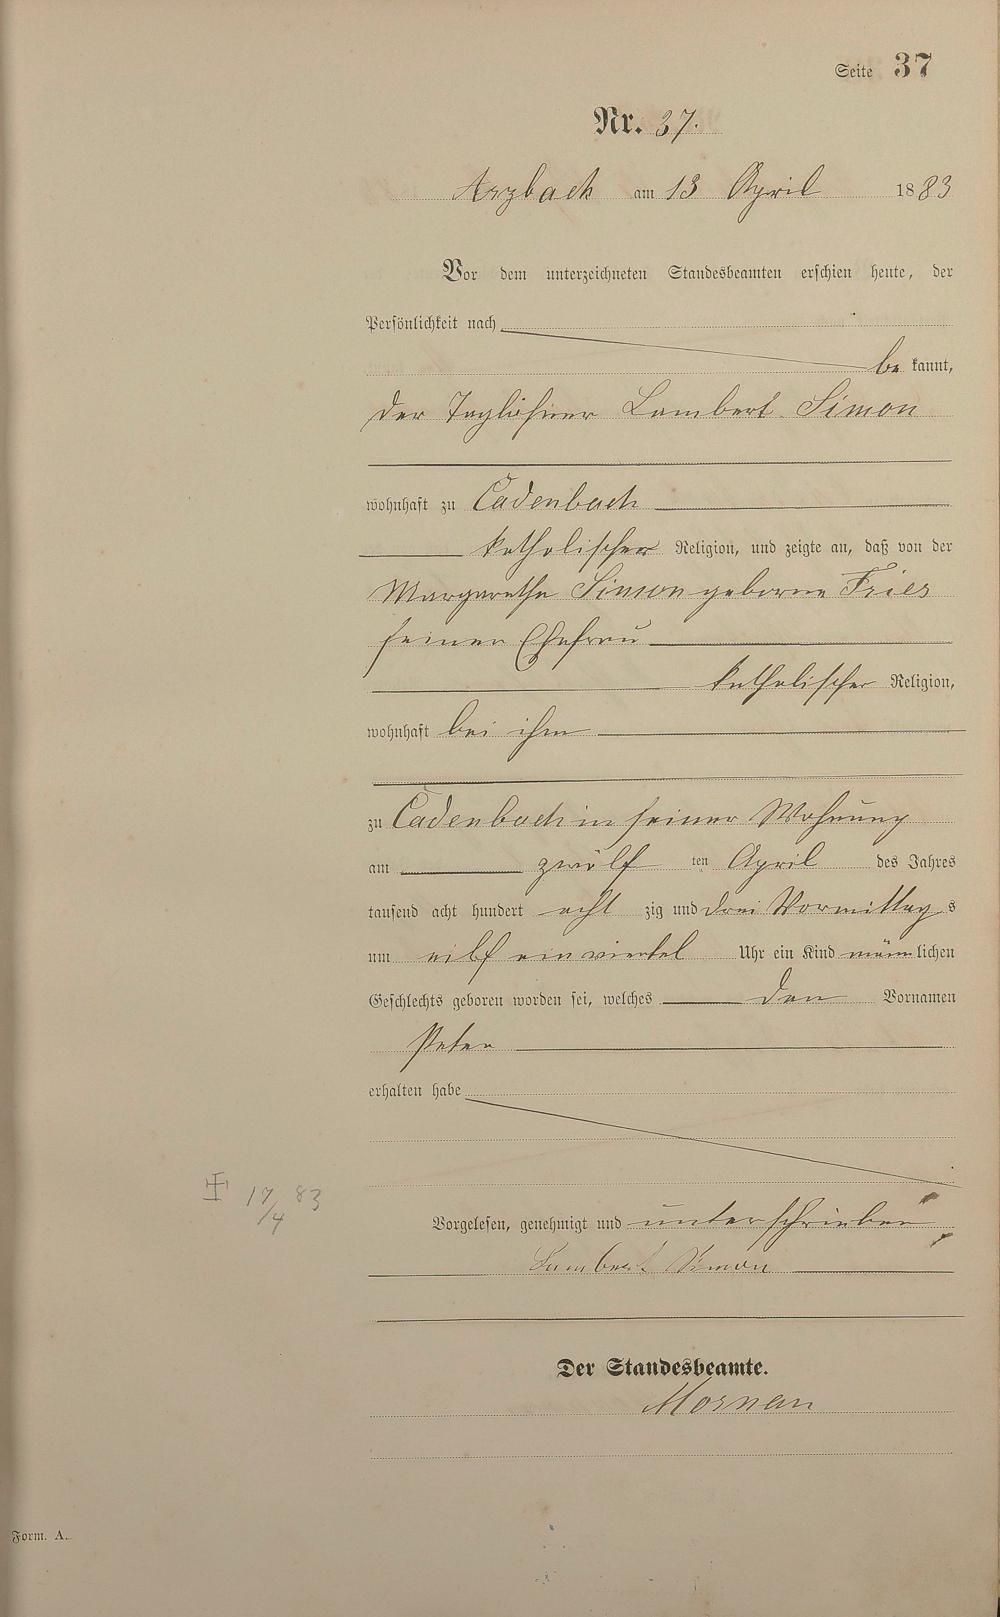 Seite 37
Nr. 37.
Arzbach am 13 April 1883
Vor dem unterzeichneten Standesbeamten erschien heute, der
Persönlichkeit nach
be kannt,
der Taglöhner Lambert Simon
wohnhaft zu Cadenbach
katholischer Religion, und zeigte an, daß von der
Margarethe Simon geborne Fries
seiner Ehefrau
katholischer Religion,
wohnhaft bei ihm
zu Cadenbach in seiner Wohnung
am zwölf ten April des Jahres
tausend acht hundert acht zig und drei Vormittag s
um eilf ein viertel Uhr ein Kind männ lichen
Geschlechts geboren worden sei, welches den Vornamen
Peter
erhalten habe
17/4 83
Vorgelesen, genehmigt und unterschrieben
Lambert Simon
Der Standesbeamte.
Form. A.